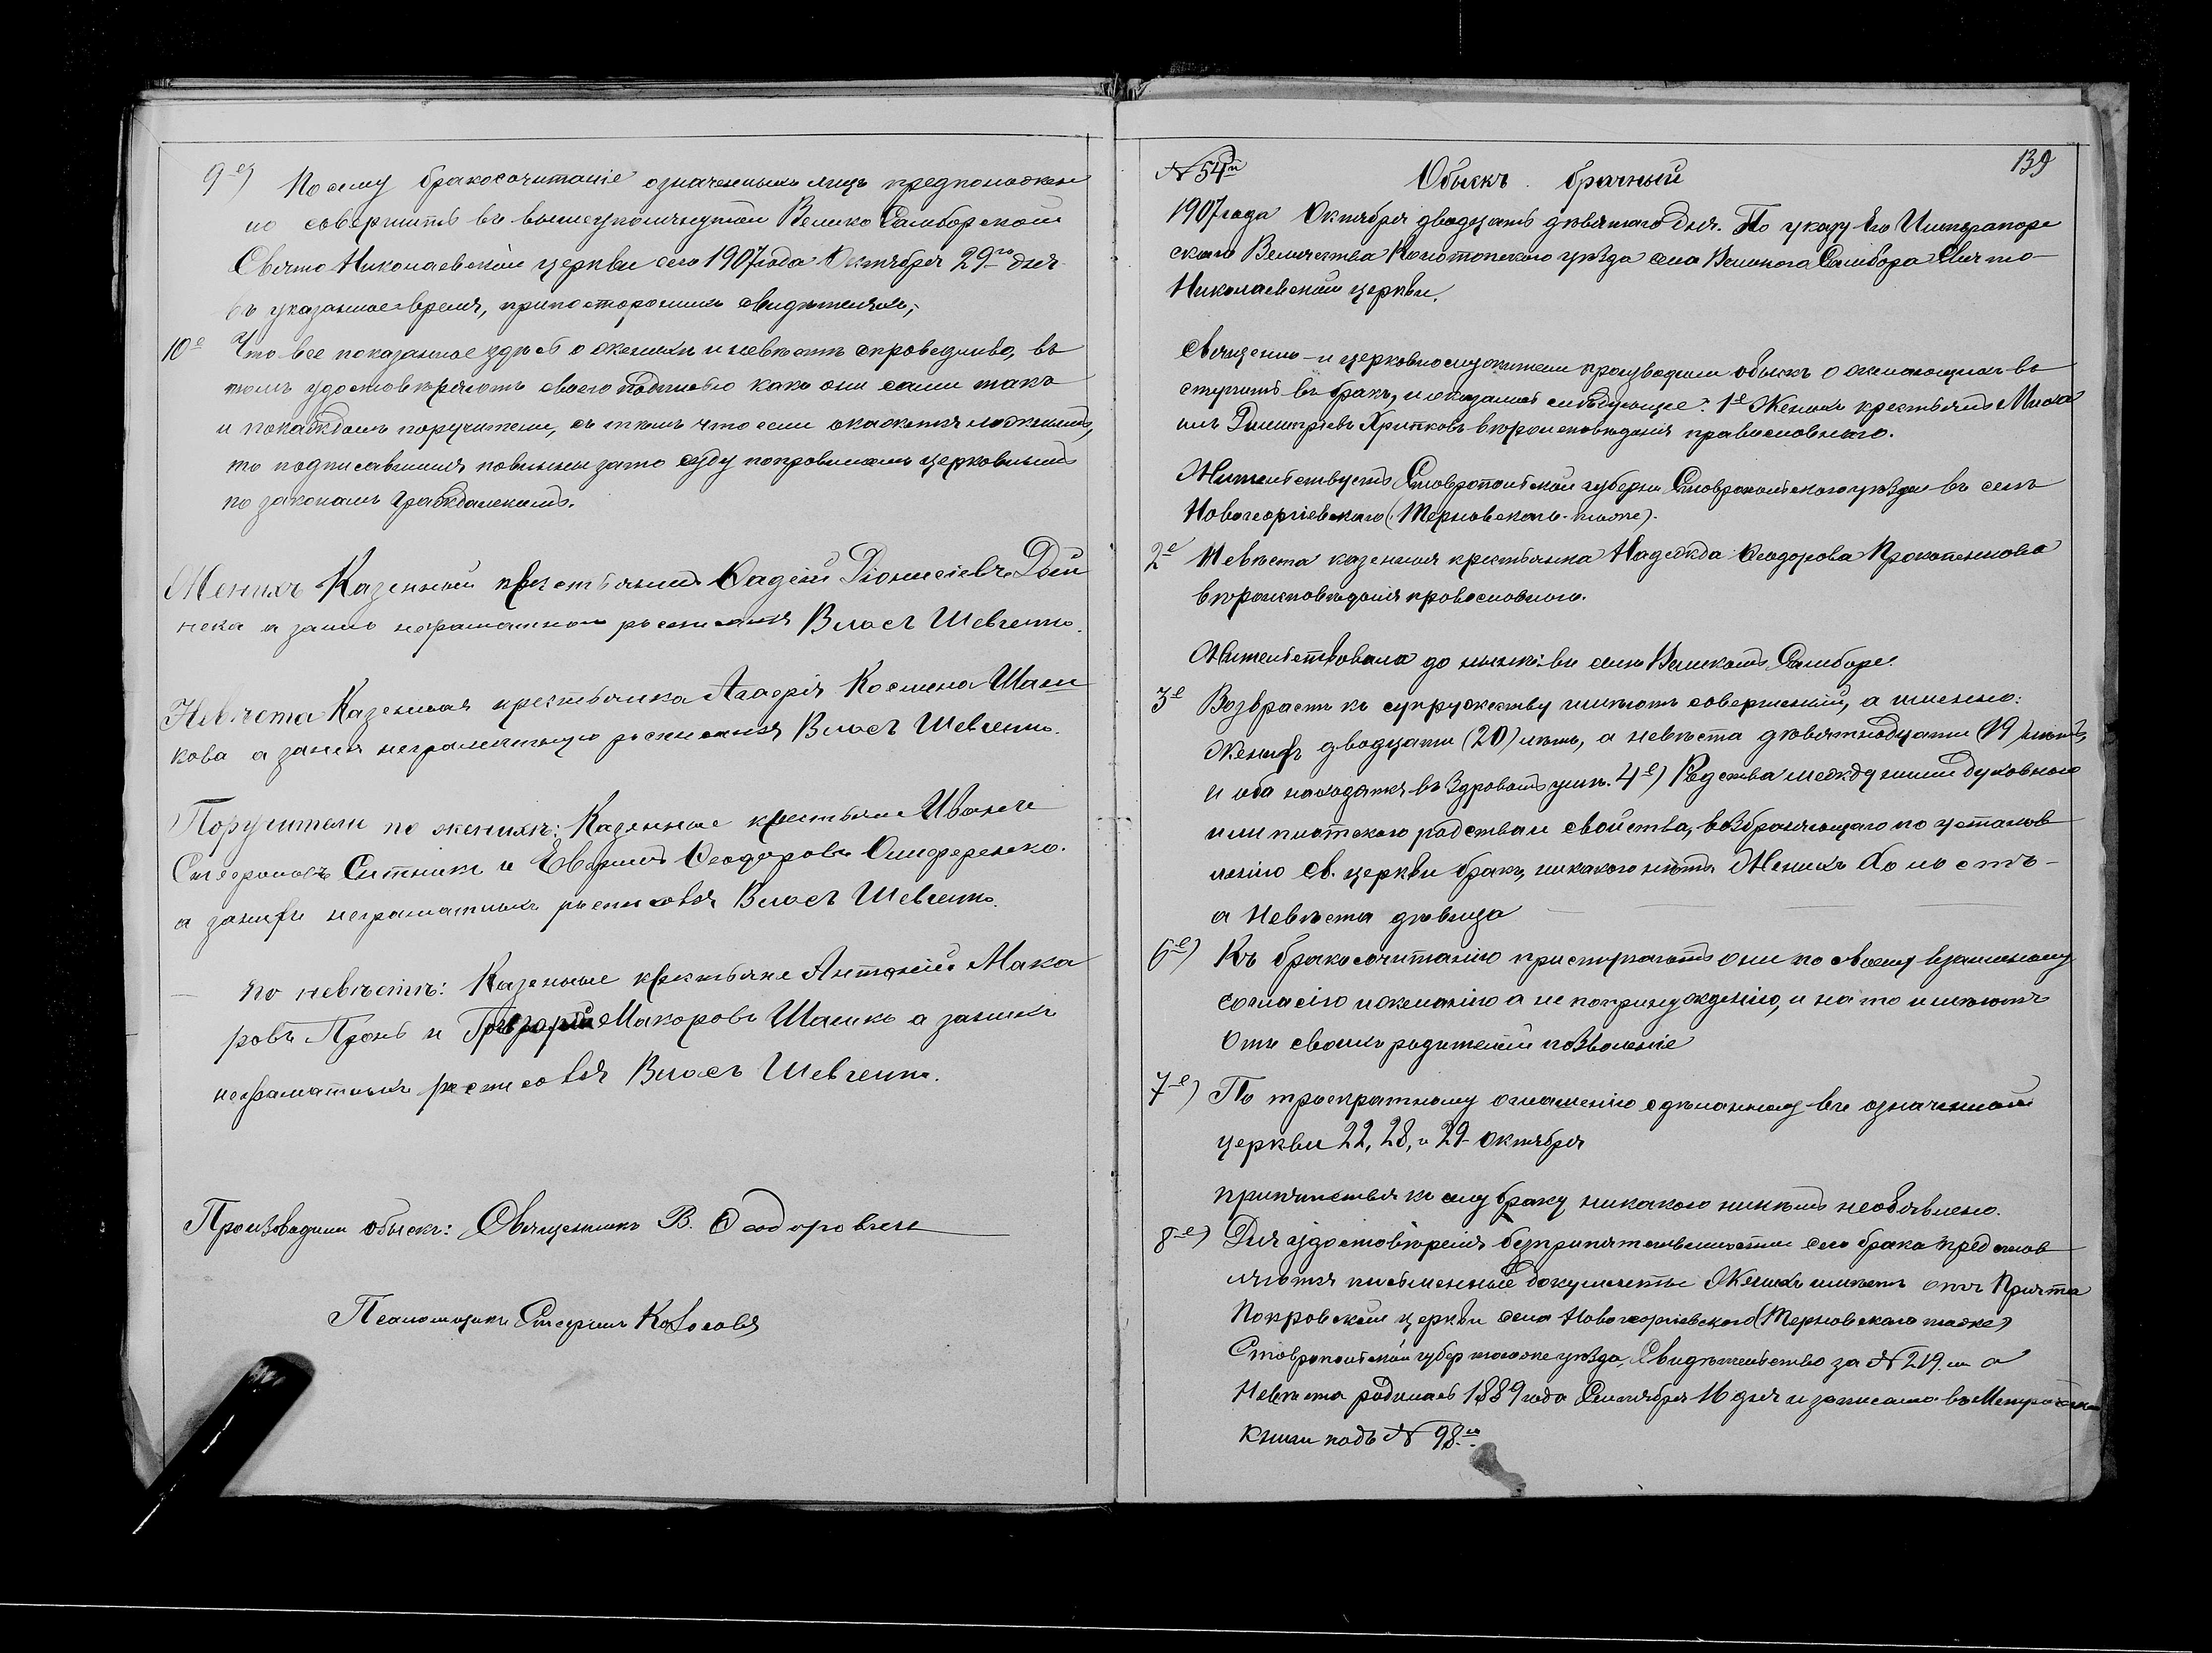 9-е) По сему бракосочитаніе означенныхъ лицъ предположен
но совершить въ вышеупомянутой Велико Самборской
Свято Николаевской церкви сего 1907 года Октября 29-го дня
въ указанное время, при постороннихъ свидѣтеляхъ;
10-е Что все показанное здѣсь о женихѣ и невѣстѣ справедливо, въ
томъ удостовѣряютъ своею подписью какъ они сами такъ
и по каждомъ поручители, съ тѣмъ что если окажется ложнымъ,
то подписавшіеся повинны зато суду по правиламъ церковнымъ
по законамъ гражданскимъ.
Женихъ Казенный крестьянинъ Фадей Діонисіевъ Дой
нека а за него неграматнаго росписался Власъ Шевченко.
Невѣста Казенная крестьянка Агафія Космина Шаш
кова а за нея неграматную росписался Власъ Шевченко.
Поручители по женихѣ: Казенные крестьяне Иванъ
Стефановъ Ситникъ и Феодоровъ Ониференко.
а за нихъ неграматныхъ росписовся Власъ Шевченко.
по невѣстѣ: Казенные крестьяне Антоній Мака
ровъ Пронь и Григорій Макаровъ Шашко а за нихъ
неграматныхъ росписовся Власъ Шевченко.
Производили обыскъ: Священникъ В. Феодоровъ
Псаломщикъ Стефанъ
№ 54й Обыскъ брачный 139
1907 года Октября двадцать девятаго дня. По указу Его Императорс
скаго Величества Конотопскаго уѣзда села Великаго Самбора Свято-
Николаевской церкви.
Священно-и церковнослужители производили обыскъ о желающихъ в
ступить въ бракъ, и оказалось слѣдующее: 1-е Женихъ крестьянинъ Миха
илъ Димитріевъ Хрипковъ вѣроисповѣданія православнаго.
Жительствуетъ Ставропольской губерни Ставропольскаго уѣзда въ селѣ
Новогеоргіевскаго (Терновскаго тоже).
2-е Невѣста казенная крестьянка Надежда Феодорова Прокопенкова
вѣроисповѣданія православнаго.
Жительствовала до нынѣ въ селѣ Великомъ Самборе.
3-е Возврастъ къ супружеству имѣютъ совершенный, а именно:
женихъ двадцати (20) лѣтъ, а невѣста девятнадцати (19) лѣтъ,
и оба находятся въ здравомъ умѣ. 4-е) Родства между ними духовнаго
или плотскаго родства и свойства, возбраняющаго по установ
ленію св. церкви бракъ, никакого нѣтъ. Женихъ холостъ-
а Невѣста дѣвица
6-е) Къ бракосочитанію приступаютъ они по своему взаимному
согласію и желанію а не по принужденію, и на то имѣютъ
отъ своихъ родителей позволеніе
7-е) По троекратному оглашенію сдѣланному въ означенной
церкви 22, 28, и 29 Октября
припятствія къ сему браку никакого никѣмъ необявлено.
8-е) Для удостовѣренія безприпятственности сего брака представ
ляются письменные документы Женихъ имѣетъ отъ Причта
Покровской церкви села Новогеоргіевскаго (Терновскаго тоже)
Ставропольской губер тогоже уѣзда, Свидѣтельство за № 219. а
Невѣста родилась 1889 года Сентября 16 дня и записана въ Метрической
книги подъ № 98.м